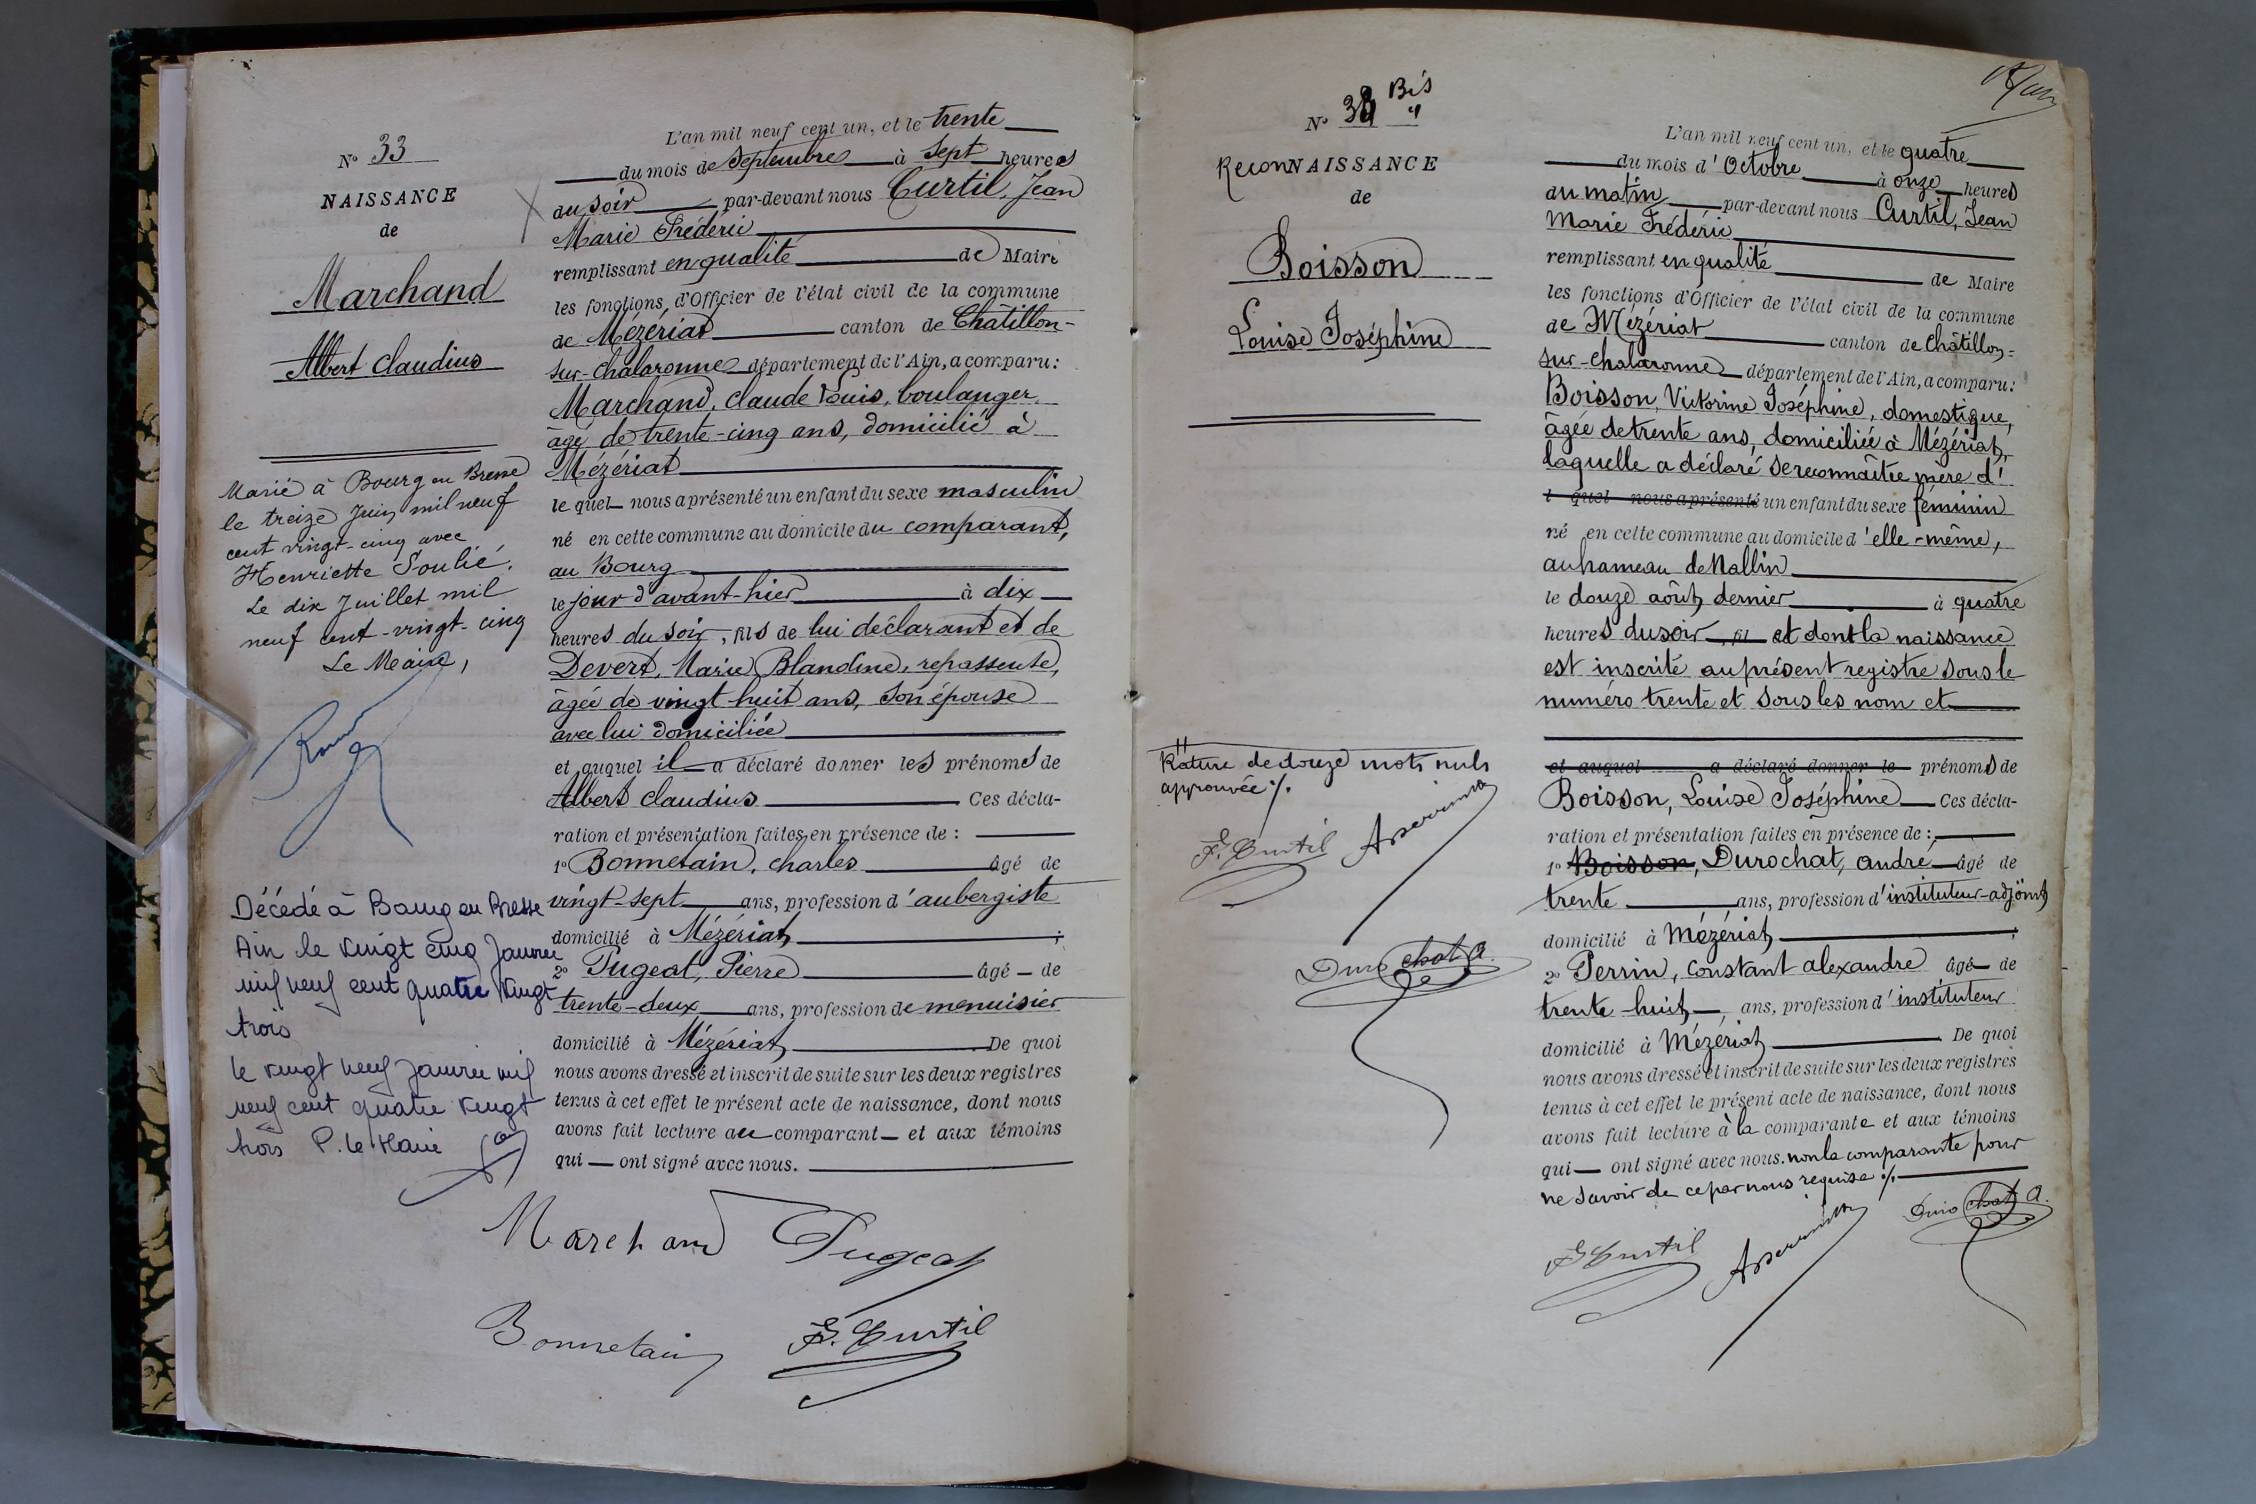 N° 33
NAISSANCE
de
Marchand
Albert Claudius
Marié à Bourg en Bresse
le treize Juin mil neuf
cent vingt-cinq avec
Henriette Soulié.
Le dix Juillet mil
neuf cent-vingt-cinq
Le Maire,
Décédé à Bourg en Bresse
Ain le vingt cinq Janvier
mil neuf cent quatre vingt
trois
le vingt neuf Janvier mil
neuf cent quatre vingt
trois P. le Maire
L'an mil neuf cent un, et le trente
du mois de Septembre à Sept heures
du soir par-devant nous Curtil, Jean
Marie Frédéric
remplissant en qualité de Maire
les fonctions d'Officier de l'état civil de la commune
de Mézériat canton de Châtillon-
sur-Chalaronne département de l'Ain, a comparu:
Marchand, Claude Louis, boulanger
âgé de trente-cinq ans, domicilié à
Mézériat
lequel nous a présenté un enfant du sexe masculin
né en cette commune au domicile du comparant,
au Bourg
le jour d'avant-hier à dix
heures du soir, fils de lui déclarant et de
Devert, Marie Blandine, repasseuse,
âgée de vingt-huit ans, son épouse
avec lui domiciliée
et auquel il a déclaré donner les prénoms de
Albert Claudius Ces décla-
ration et présentation faites en présence de :
1° Bonnetain, Charles âgé de
vingt-sept ans, profession d'aubergiste
domicilié à Mézériat ;
2° Pugeat, Pierre âgé de
trente-deux ans, profession de menuisier
domicilié à Mézériat De quoi
nous avons dressé et inscrit de suite sur les deux registres
tenus à cet effet le présent acte de naissance, dont nous
avons fait lecture au comparant et aux témoins
qui ont signé avec nous.
Marchand Pugeat
Bonnetain F. Curtil
N° 33 Bis
ReconNAISSANCE
de
Boisson
Louise Joséphine
Rature de douze mots nuls
approuvée ./.
F. Curtil
Durochat A.
L'an mil neuf cent un, et le quatre
du mois d'Octobre à onze heures
du matin par-devant nous Curtil, Jean
Marie Frédéric
remplissant en qualité de Maire
les fonctions d'Officier de l'état civil de la commune
de Mézériat canton de Châtillon-
sur-Chalaronne département de l'Ain, a comparu:
Boisson, Victorine Joséphine, domestique,
âgée de trente ans, domiciliée à Mézériat,
laquelle a déclaré se reconnaître mère d'
l quel nous a présenté un enfant du sexe féminin
né en cette commune au domicile d'elle-même,
au hameau de Nallin
le douze août dernier à quatre
heures du soir, fil et dont la naissance
est inscrite au présent registre sous le
numéro trente et sous les nom et
et auquel a déclaré donner le prénoms de
Boisson, Louise Joséphine Ces décla-
ration et présentation faites en présence de :
1° Boisson, Durochat, André âgé de
trente ans, profession d'instituteur-adjoint
domicilié à Mézériat ;
2° Perrin, Constant Alexandre âgé de
trente-huit ans, profession d'instituteur
domicilié à Mézériat De quoi
nous avons dressé et inscrit de suite sur les deux registres
tenus à cet effet le présent acte de naissance, dont nous
avons fait lecture à la comparante et aux témoins
qui ont signé avec nous. non la comparante pour
ne savoir de ce par nous requise ./.
F. Curtil Durochat A.